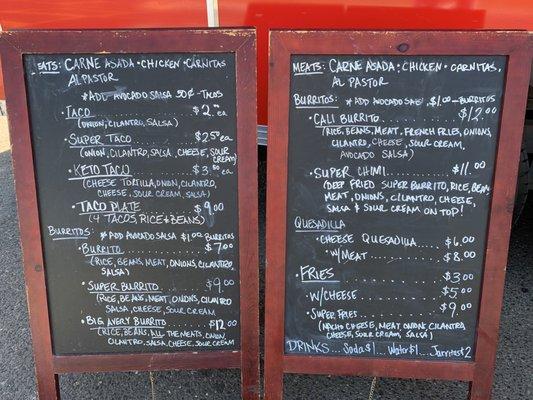 EATS: CARNE ASADA • CHICKEN • CARNITAS
AL PASTOR
* ADD AVOCADO SALSA 50¢ - TACOS
• TACO ............ $2.
(ONION, CILANTRO, SALSA)
• SUPER TACO ............ $2.50 ea
(ONION, CILANTRO, SALSA, CHEESE, SOUR CREAM)
• KETO TACO ............ $3.50 ea
(CHEESE TORTILLA, ONION, CILANTRO, CHEESE, SOUR CREAM, SALSA)
• TACO PLATE ............ $9.00
(4 TACOS, RICE & BEANS)
BURRITOS: * ADD AVOCADO SALSA $1.00 BURRITOS
• BURRITO ............ $7.00
(RICE, BEANS, MEAT, ONIONS, CILANTRO
SALSA)
• SUPER BURRITO ............ $9.00
(RICE, BEANS, MEAT, ONIONS, CILANTRO
SALSA, CHEESE, SOUR CREAM)
• BIG AVERY BURRITO ............ $12.00
(RICE, BEANS, ALL THE MEATS, ONION
CILANTRO, SALSA, CHEESE, SOUR CREAM)
MEATS: CARNE ASADA • CHICKEN • CARNITAS,
AL PASTOR
BURRITOS: * ADD AVOCADO SALSA $1.00 - BURRITOS
• CALI BURRITO ............ $12.00
(RICE, BEANS, MEAT, FRENCH FRIES, ONIONS
CILANTRO, CHEESE, SOUR CREAM,
AVOCADO SALSA)
• SUPER CHIMI ............ $11.00
(DEEP FRIED SUPER BURRITO, RICE, BEANS
MEAT, ONIONS, CILANTRO, CHEESE,
SALSA & SOUR CREAM ON TOP!)
QUESADILLA
• CHEESE QUESADILLA .... $6.00
• W/MEAT ............ $8.00
• FRIES ............ $3.00
W/CHEESE ............ $5.00
• SUPER FRIES ............ $9.00
(NACHO CHEESE, MEAT, ONION, CILANTRO,
CHEESE, SALSA, SOUR CREAM)
DRINKS... Soda $1 ... Water $1 ... Jarritos $2